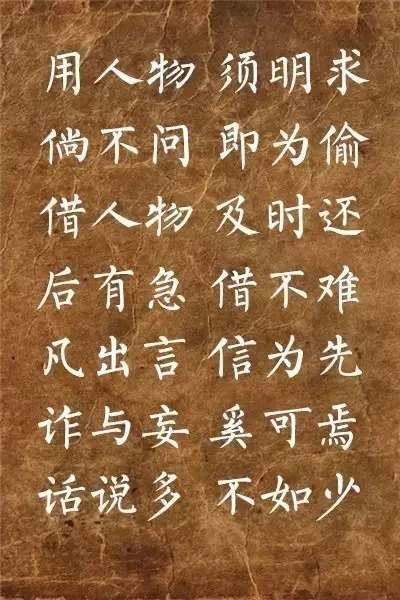 用人物 须明求
倘不问 即为偷
借人物 及时还
后有急 借不难
凡出言 信为先
诈与妄 奚可焉
话说多 不如少